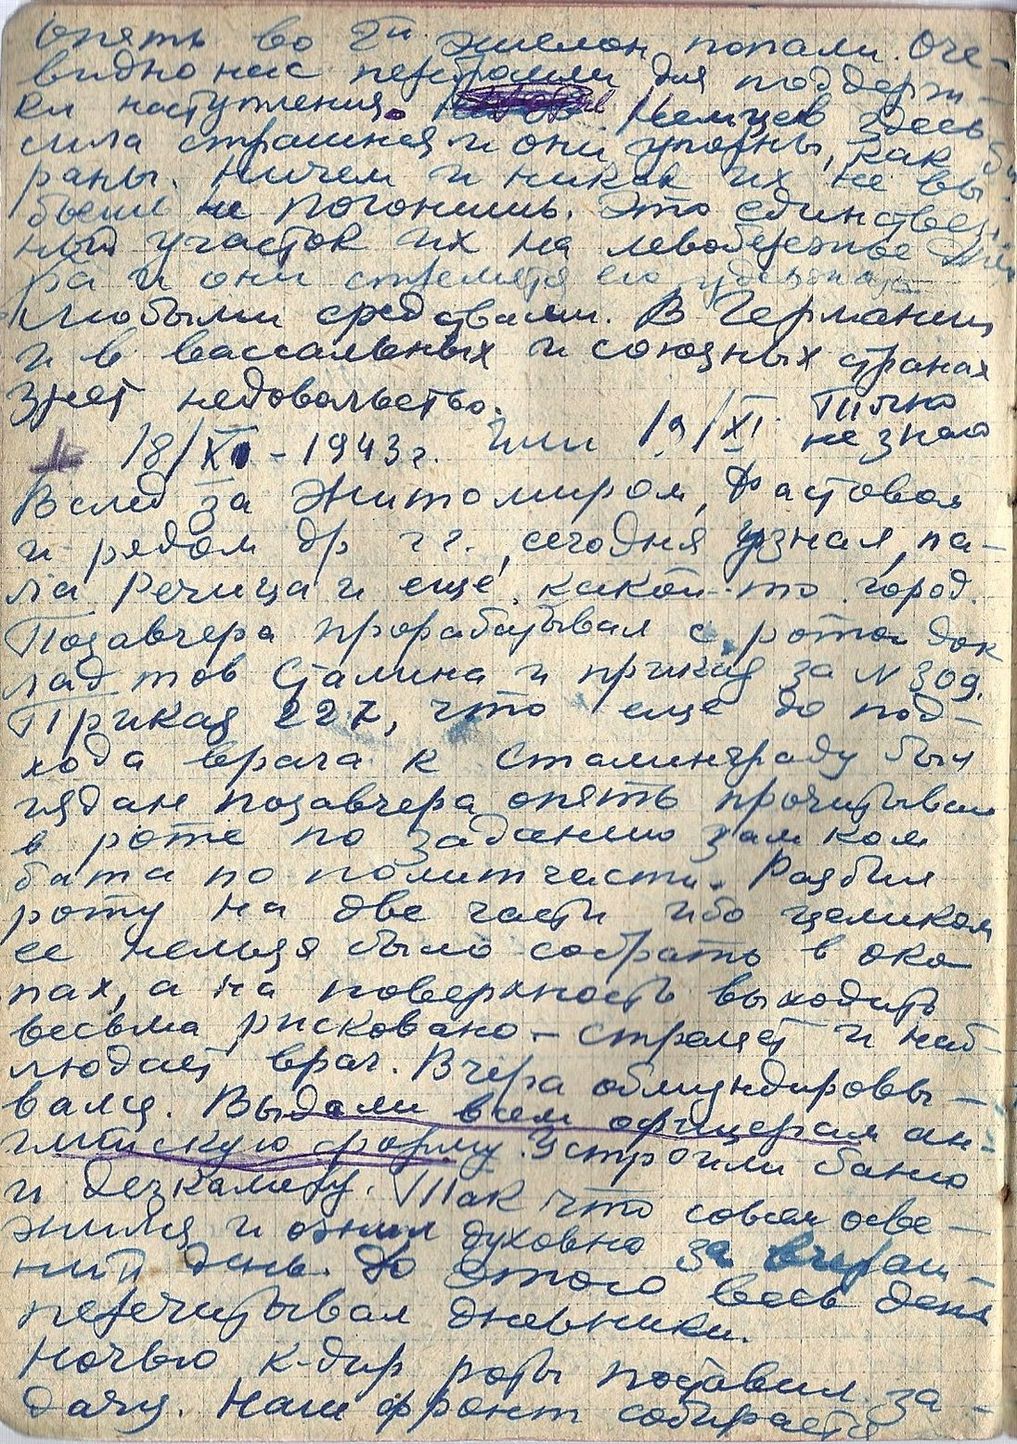 опять во 2й эшелон попали. Оче-
видно нас перебросили для поддерж-
ки наступления. Немцев здесь
сила страшная и они упорны, как ба-
раны. Ничем и никак их не вы-
бьешь не погонишь. Это единствен-
ный участок их на левобережье Днеп-
ра и они стремятся его удержать
любыми средствами. В Германии,
и в вассальных и союзных странах
зреет недовольство.
18/XI - 1943 г. Или 19/XI. Точно
не знаю
Вслед за Житомиром, Фастовом
и рядом др гг., сегодня узнал, па-
ла Речица и еще какой-то город.
Позавчера прорабатывал с ротой док
лад тов Сталина и приказ за N 309.
Приказ 227, что еще до под-
хода врага к Сталинграду был
издан позавчера опять прочитывал
в роте по заданию зам ком
бата по политчасти. Разбил
роту на две части ибо целиком
ее нельзя было собрать в око
пах, а на поверхность выходить
весьма рисковано - стреляет и наб-
людает враг. Вчера обмундировы-
вался. Выдали всем офицерам ан-
глийскую форму. Устроили баню
и дезкамеру. Так что совсем осве-
жился и ожил духовно за вчераш-
ний день. До этого весь день
перечитывал дневники.
Ночью к-дир роты поставил за-
дачу. Наш фронт собирается